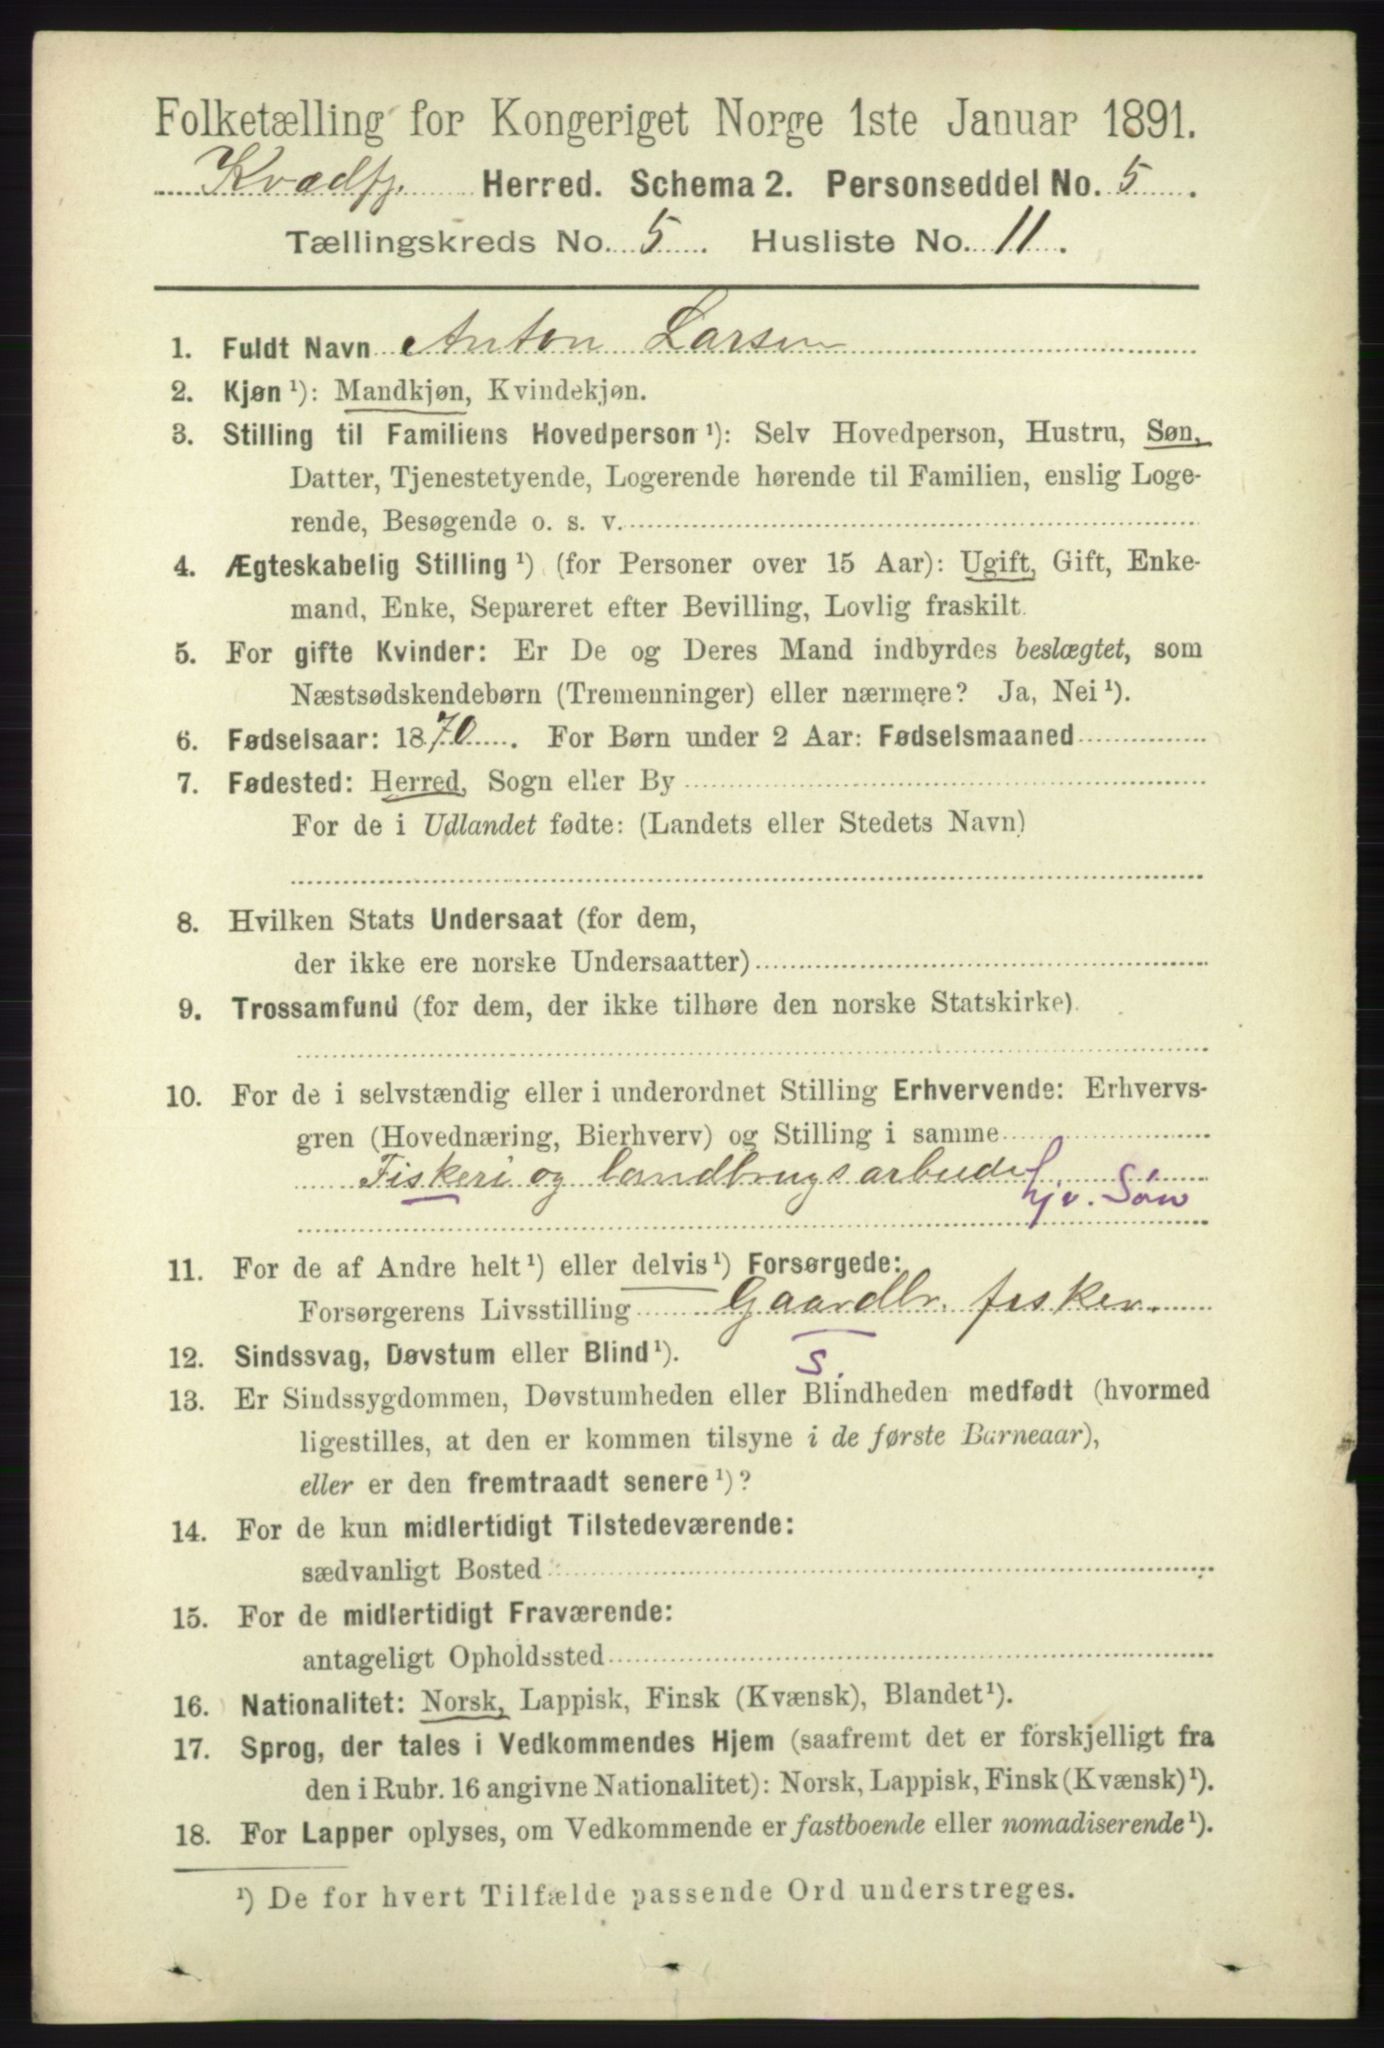 Folketælling for Kongeriget Norge 1ste Januar 1891.
Kvædfj. Herred. Schema 2. Personseddel No. 5.
Tællingskreds No. 5. Husliste No. 11.
1. Fuldt Navn Anton Larsen
2. Kjøn¹): Mandkjøn, Kvindekjøn.
3. Stilling til Familiens Hovedperson¹): Selv Hovedperson, Hustru, Søn,
Datter, Tjenestetyende, Logerende hørende til Familien, enslig Loge-
rende, Besøgende o. s. v.
4. Ægteskabelig Stilling¹) (for Personer over 15 Aar): Ugift, Gift, Enke-
mand, Enke, Separeret efter Bevilling, Lovlig fraskilt.
5. For gifte Kvinder: Er De og Deres Mand indbyrdes beslægtet, som
Næstsødskendebørn (Tremenninger) eller nærmere? Ja, Nei¹).
6. Fødselsaar: 1870. For Børn under 2 Aar: Fødselsmaaned
7. Fødested: Herred, Sogn eller By
For de i Udlandet fødte: (Landets eller Stedets Navn)
8. Hvilken Stats Undersaat (for dem,
der ikke ere norske Undersaatter)
9. Trossamfund (for dem, der ikke tilhøre den norske Statskirke).
10. For de i selvstændig eller i underordnet Stilling Erhvervende: Erhvervs-
gren (Hovednæring, Bierhverv) og Stilling i samme
Fiskeri og landbrugsarbeide
hjv. Søn
11. For de af Andre helt¹) eller delvis¹) Forsørgede:
Forsørgerens Livsstilling Gaardbr. fisker.
S.
12. Sindssvag, Døvstum eller Blind¹).
13. Er Sindssygdommen, Døvstumheden eller Blindheden medfødt (hvormed
ligestilles, at den er kommen tilsyne i de første Barneaar),
eller er den fremtraadt senere¹)?
14. For de kun midlertidigt Tilstedeværende:
sædvanligt Bosted
15. For de midlertidigt Fraværende:
antageligt Opholdssted
16. Nationalitet: Norsk, Lappisk, Finsk (Kvænsk), Blandet¹).
17. Sprog, der tales i Vedkommendes Hjem (saafremt det er forskjelligt fra
den i Rubr. 16 angivne Nationalitet): Norsk, Lappisk, Finsk (Kvænsk)¹).
18. For Lapper oplyses, om Vedkommende er fastboende eller nomadiserende¹).
¹) De for hvert Tilfælde passende Ord understreges.